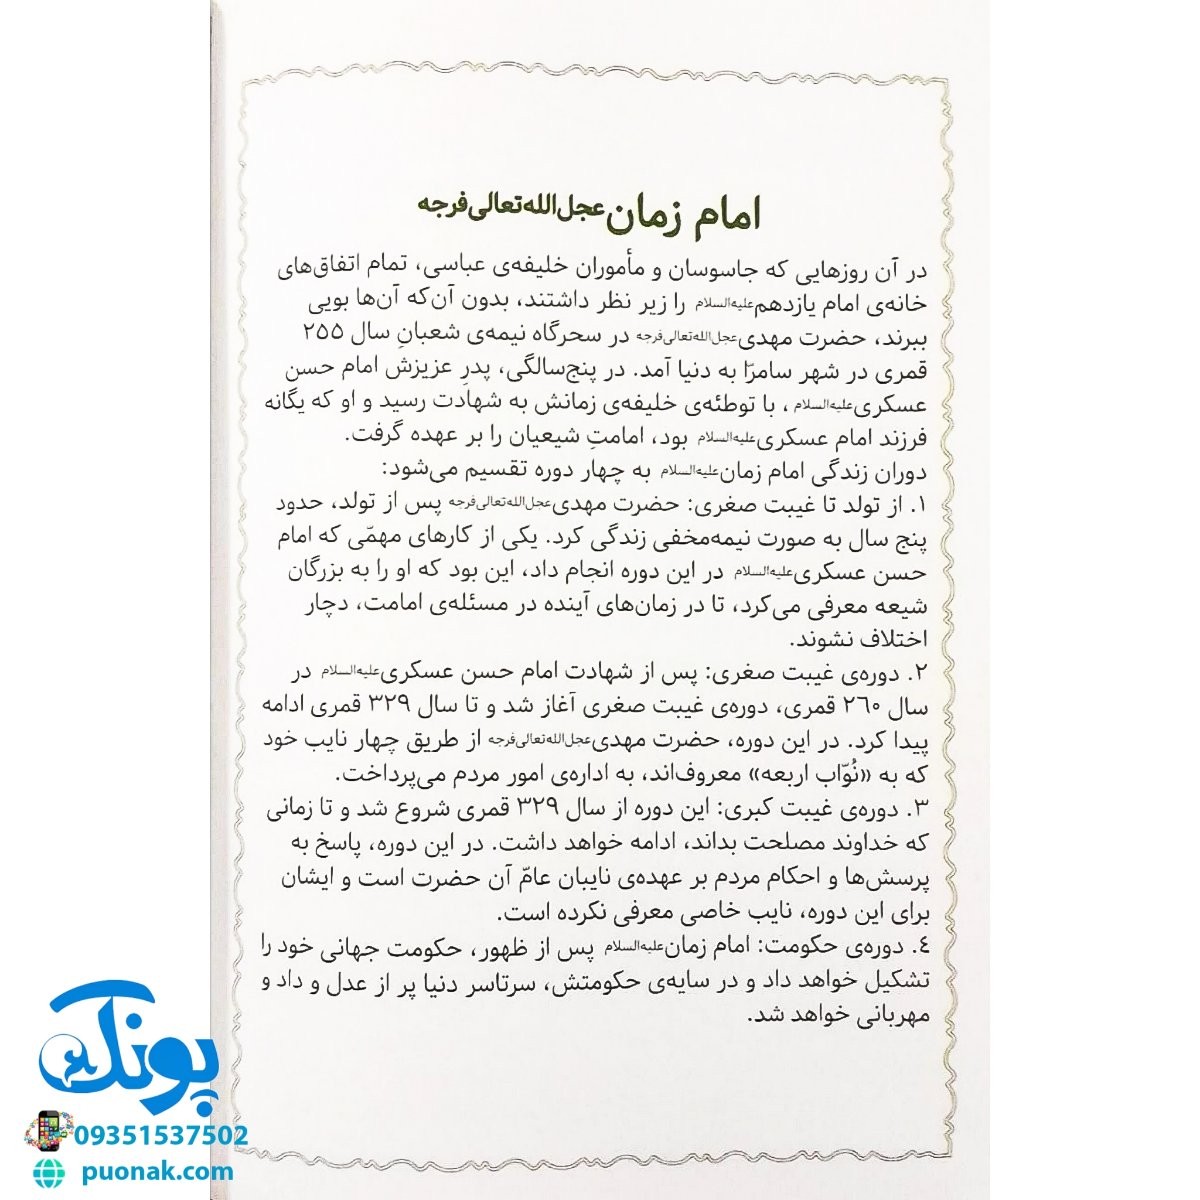 امام زمان عجل‌الله‌تعالی‌فرجه
در آن روزهایی که جاسوسان و مأموران خلیفه‌ی عباسی، تمام اتفاق‌های
خانه‌ی امام یازدهم علیه‌السلام را زیر نظر داشتند، بدون آن‌که آن‌ها بویی
ببرند، حضرت مهدی عجل‌الله‌تعالی‌فرجه در سحرگاه نیمه‌ی شعبانِ سال ۲۵۵
قمری در شهر سامرّا به دنیا آمد. در پنج‌سالگی، پدرِ عزیزش امام حسن
عسکری علیه‌السلام، با توطئه‌ی خلیفه‌ی زمانش به شهادت رسید و او که یگانه
فرزند امام عسکری علیه‌السلام بود، امامتِ شیعیان را بر عهده گرفت.
دوران زندگی امام زمان علیه‌السلام به چهار دوره تقسیم می‌شود:
۱. از تولد تا غیبت صغری: حضرت مهدی عجل‌الله‌تعالی‌فرجه پس از تولد، حدود
پنج سال به صورت نیمه‌مخفی زندگی کرد. یکی از کارهای مهمّی که امام
حسن عسکری علیه‌السلام در این دوره انجام داد، این بود که او را به بزرگان
شیعه معرفی می‌کرد، تا در زمان‌های آینده در مسئله‌ی امامت، دچار
اختلاف نشوند.
۲. دوره‌ی غیبت صغری: پس از شهادت امام حسن عسکری علیه‌السلام در
سال ۲۶۰ قمری، دوره‌ی غیبت صغری آغاز شد و تا سال ۳۲۹ قمری ادامه
پیدا کرد. در این دوره، حضرت مهدی عجل‌الله‌تعالی‌فرجه از طریق چهار نایب خود
که به «نُوّاب اربعه» معروف‌اند، به اداره‌ی امور مردم می‌پرداخت.
۳. دوره‌ی غیبت کبری: این دوره از سال ۳۲۹ قمری شروع شد و تا زمانی
که خداوند مصلحت بداند، ادامه خواهد داشت. در این دوره، پاسخ به
پرسش‌ها و احکام مردم بر عهده‌ی نایبان عامّ آن حضرت است و ایشان
برای این دوره، نایب خاصی معرفی نکرده است.
۴. دوره‌ی حکومت: امام زمان علیه‌السلام پس از ظهور، حکومت جهانی خود را
تشکیل خواهد داد و در سایه‌ی حکومتش، سرتاسر دنیا پر از عدل و داد و
مهربانی خواهد شد.
پونک
09351537502
puonak.com